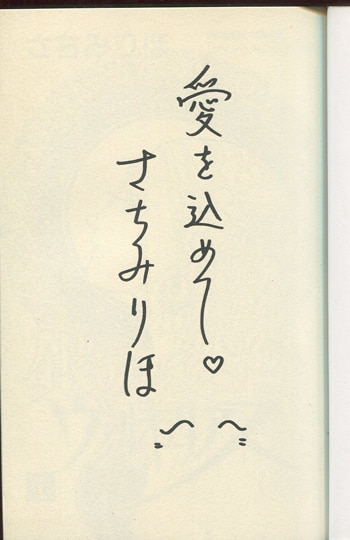 愛を込めて♡
さちみりほ